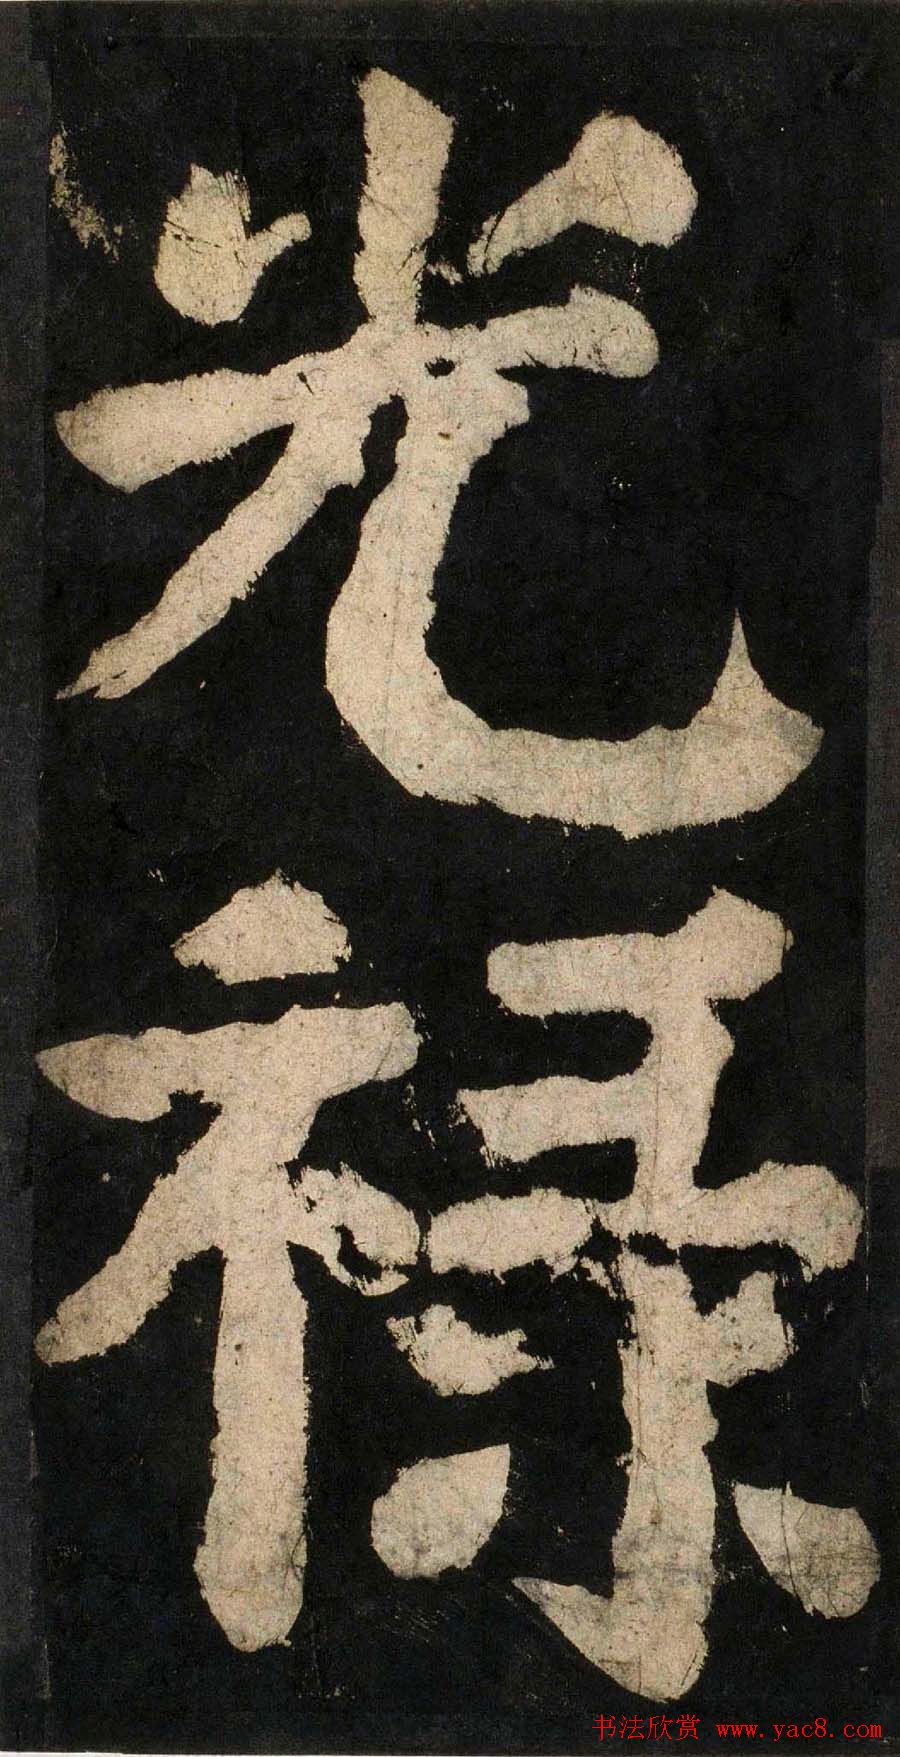 光
禄
书法欣赏 www.yac8.com